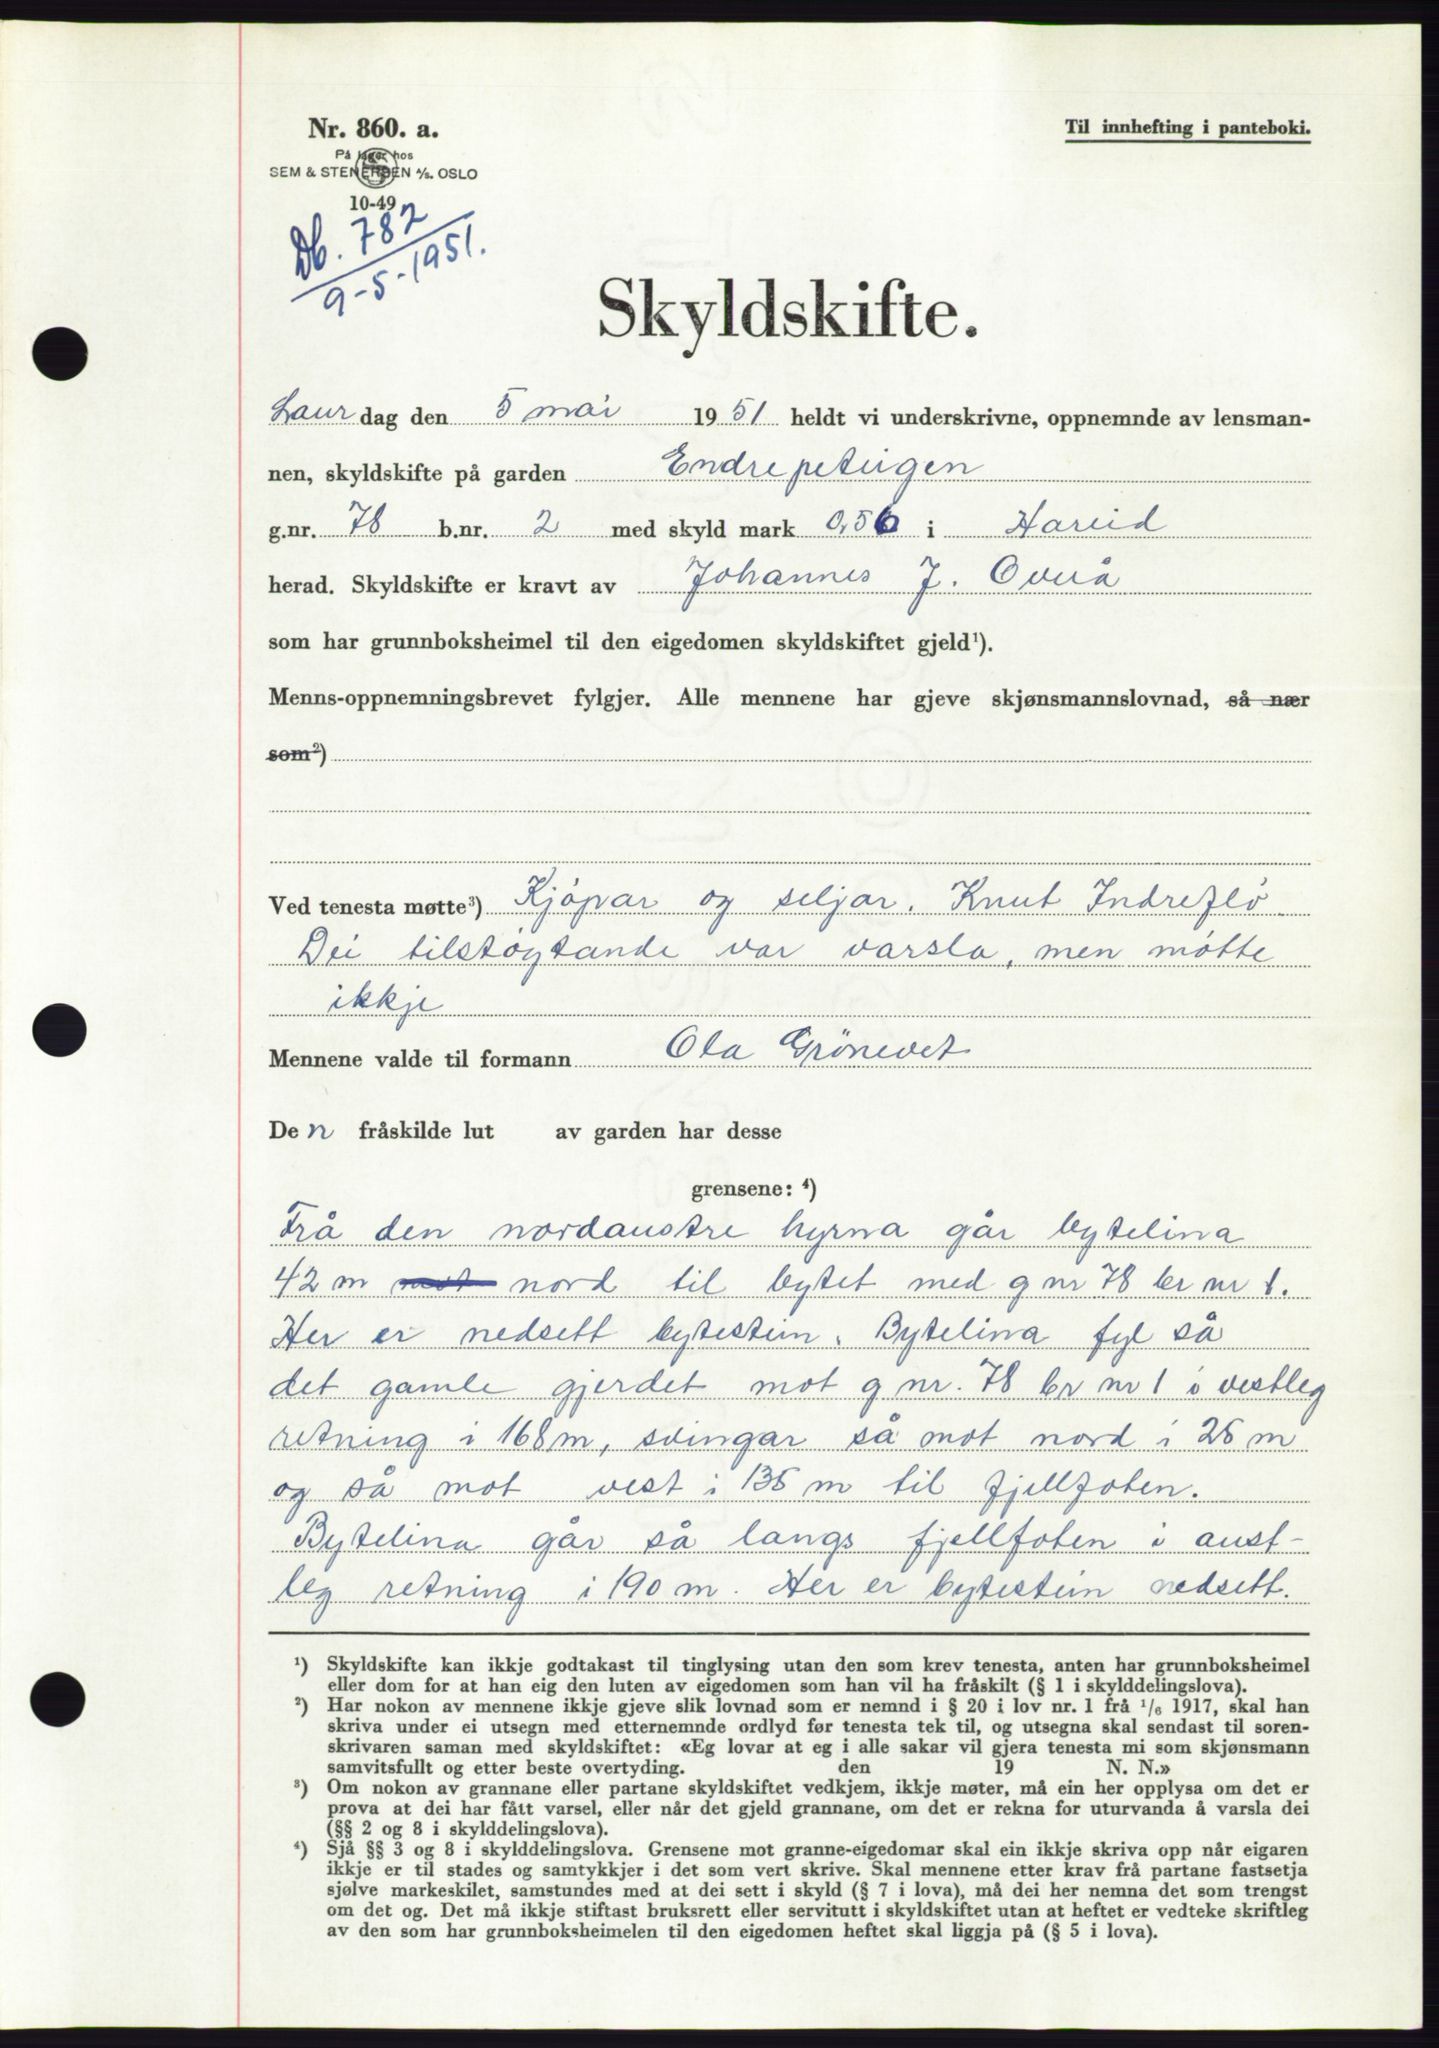 Nr. 860. a.
På lager hos
SEM & STENERSEN A/S. OSLO
10-49
Til innhefting i panteboki.
Db. 782
9-5-1951.
Skyldskifte.
Laurdag den 5 mai 1951 heldt vi underskrivne, oppnemnde av lensman-
nen, skyldskifte på garden Endrepeteigen
g.nr. 78 b.nr. 2 med skyld mark 0,56 i Hareid
herad. Skyldskifte er kravt av Johannes J. Overå
som har grunnboksheimel til den eigedomen skyldskiftet gjeld¹).
Menns-oppnemningsbrevet fylgjer. Alle mennene har gjeve skjønsmannslovnad, så nær
som²)
Ved tenesta møtte³) Kjöpar og seljar. Knut Indreflö
Dei tilstöytande var varsla, men mötte
ikkje
Mennene valde til formann Ola Grönevet
Den fråskilde lut av garden har desse
grensene: ⁴)
Frå den nordaustre hyrna går bytelina
42 m mot nord til bytet med g nr 78 br nr 1.
Her er nedsett bytestein. Bytelina fyl så
det gamle gjerdet mot g nr. 78 br nr 1 i vestleg
retning i 168 m, svingar så mot nord i 26 m
og så mot vest i 135 m til fjellfoten.
Bytelina går så langs fjellfoten i aust-
leg retning i 190 m. Her er bytestein nedsett.
¹) Skyldskifte kan ikkje godtakast til tinglysing utan den som krev tenesta, anten har grunnboksheimel
eller dom for at han eig den luten av eigedomen som han vil ha fråskilt (§ 1 i skylddelingslova).
²) Har nokon av mennene ikkje gjeve slik lovnad som er nemnd i § 20 i lov nr. 1 frå ¹/₆ 1917, skal han
skriva under ei utsegn med etternemnde ordlyd før tenesta tek til, og utsegna skal sendast til soren-
skrivaren saman med skyldskiftet: «Eg lovar at eg i alle sakar vil gjera tenesta mi som skjønsmann
samvitsfullt og etter beste overtyding. den 19 N. N.»
³) Om nokon av grannane eller partane skyldskiftet vedkjem, ikkje møter, må ein her opplysa om det er
prova at dei har fått varsel, eller når det gjeld grannane, om det er rekna for uturvanda å varsla dei
(§§ 2 og 8 i skylddelingslova).
⁴) Sjå §§ 3 og 8 i skylddelingslova. Grensene mot granne-eigedomar skal ein ikkje skriva opp når eigaren
ikkje er til stades og samtykkjer i det som vert skrive. Skal mennene etter krav frå partane fastsetja
sjølve markeskilet, samstundes med at dei sett i skyld (§ 7 i lova), må dei her nemna det som trengst
om det og. Det må ikkje stiftast bruksrett eller servitutt i skyldskiftet utan at heftet er vedteke skriftleg
av den som har grunnboksheimelen til den eigedomen heftet skal liggja på (§ 5 i lova).